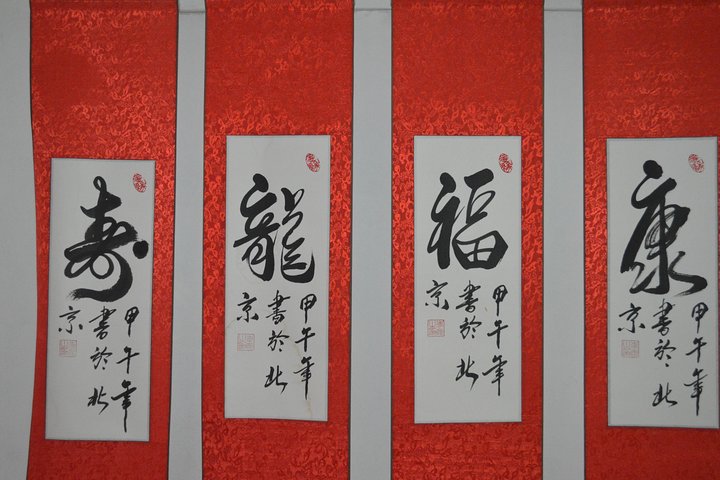 寿
甲午年
書於北
京
龍
甲午年
書於北
京
福
甲午年
書於北
京
康
甲午年
書於北
京